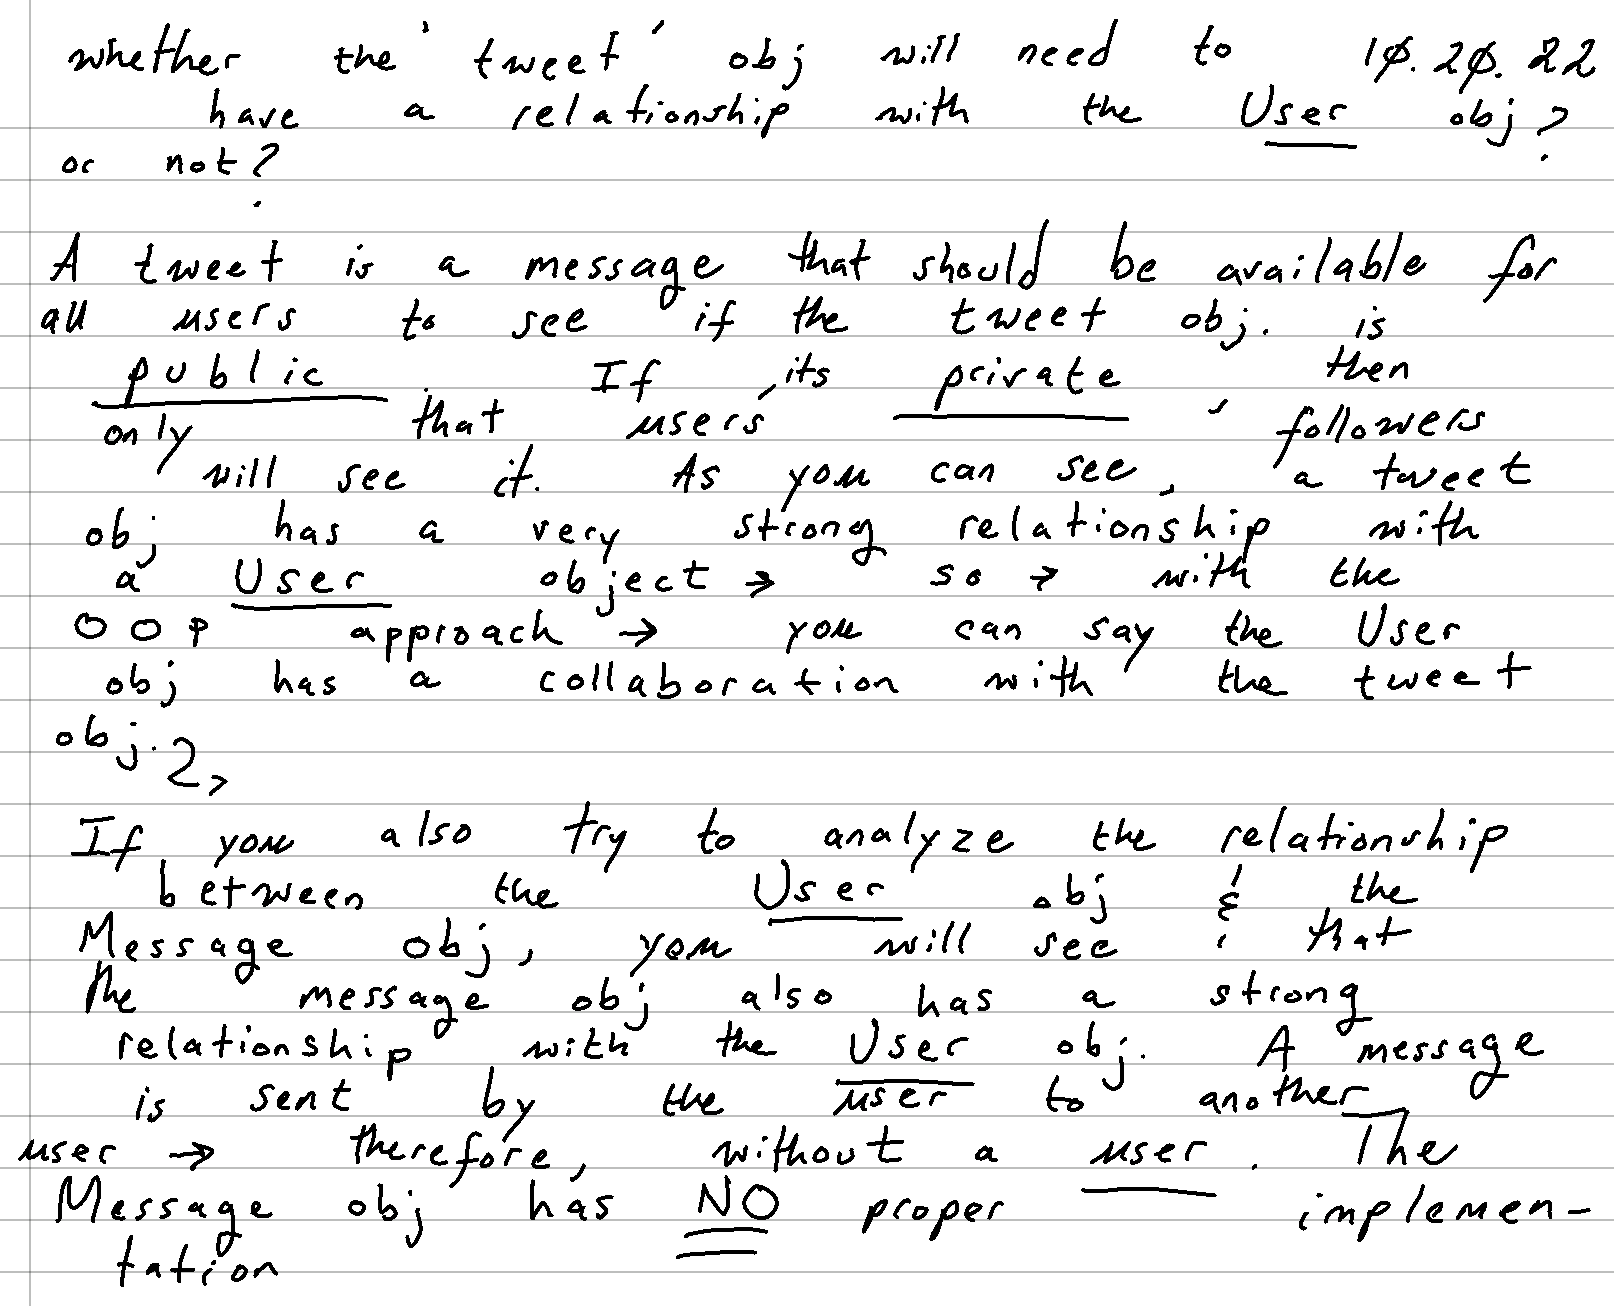 whether the 'tweet' obj will need to 10.20.22
have a relationship with the User obj?
or not?
A tweet is a message that should be available for
all users to see if the tweet obj. is
public. If its private, then
only that users' followers
will see it. As you can see, a tweet
obj has a very strong relationship with
a User object → so → with the
OOP approach → you can say the User
obj has a collaboration with the tweet
obj.
If you also try to analyze the relationship
between the User obj & the
Message obj, you will see that
the message obj also has a strong
relationship with the User obj. A message
is sent by the user to another
user → therefore, without a user. The
Message obj has NO proper implemen-
tation